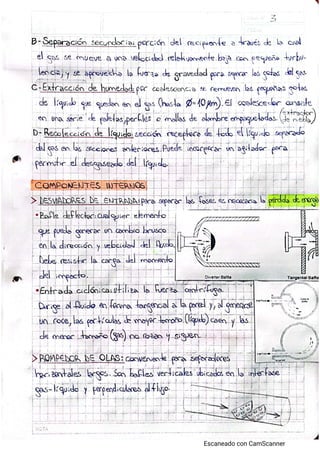 3
B- Separación secundaria: porción del recipiente a través de la cual
el gas se mueve a una velocidad relativamente baja con pequeña turbu-
lencia, y se aprovecha la fuerza de gravedad para separar las gotas del gas
C- Extracción de humedad: por coalescencia se remueven las pequeñas gotas
de líquido que queden en el gas (hasta Ø=10 µm). El coalescedor consiste
en una serie de paletas, perfiles o mallas de alambre empaquetadas. (extractor de niebla)
D- Recolección de líquido: sección receptora de todo el líquido separado
del gas en las secciones anteriores. Puede incorporar un agitador para
permitir el desgaseado del líquido.
COMPONENTES INTERNOS
> DESVIADORES DE ENTRADA: para separar las fases es necesaria la pérdida de energía
• Bafle deflector: cualquier elemento
que pueda generar un cambio brusco
en la dirección y velocidad del fluido.
Debe resistir la carga del momento
del impacto.
Diverter Baffle
Tangential Baffle
• Entrada ciclónica: utiliza la fuerza centrífuga.
Dirige al fluido en forma tangencial a la pared y, al generarse
un roce, las partículas de mayor tamaño (líquido) caen y las
de menor tamaño (gas) no rotan y siguen.
> ROMPEDOR DE OLAS: conveniente para separadores
horizontales largos. Son bafles verticales ubicados en la interfase
gas-líquido y perpendiculares al flujo
NOTA
Escaneado con CamScanner